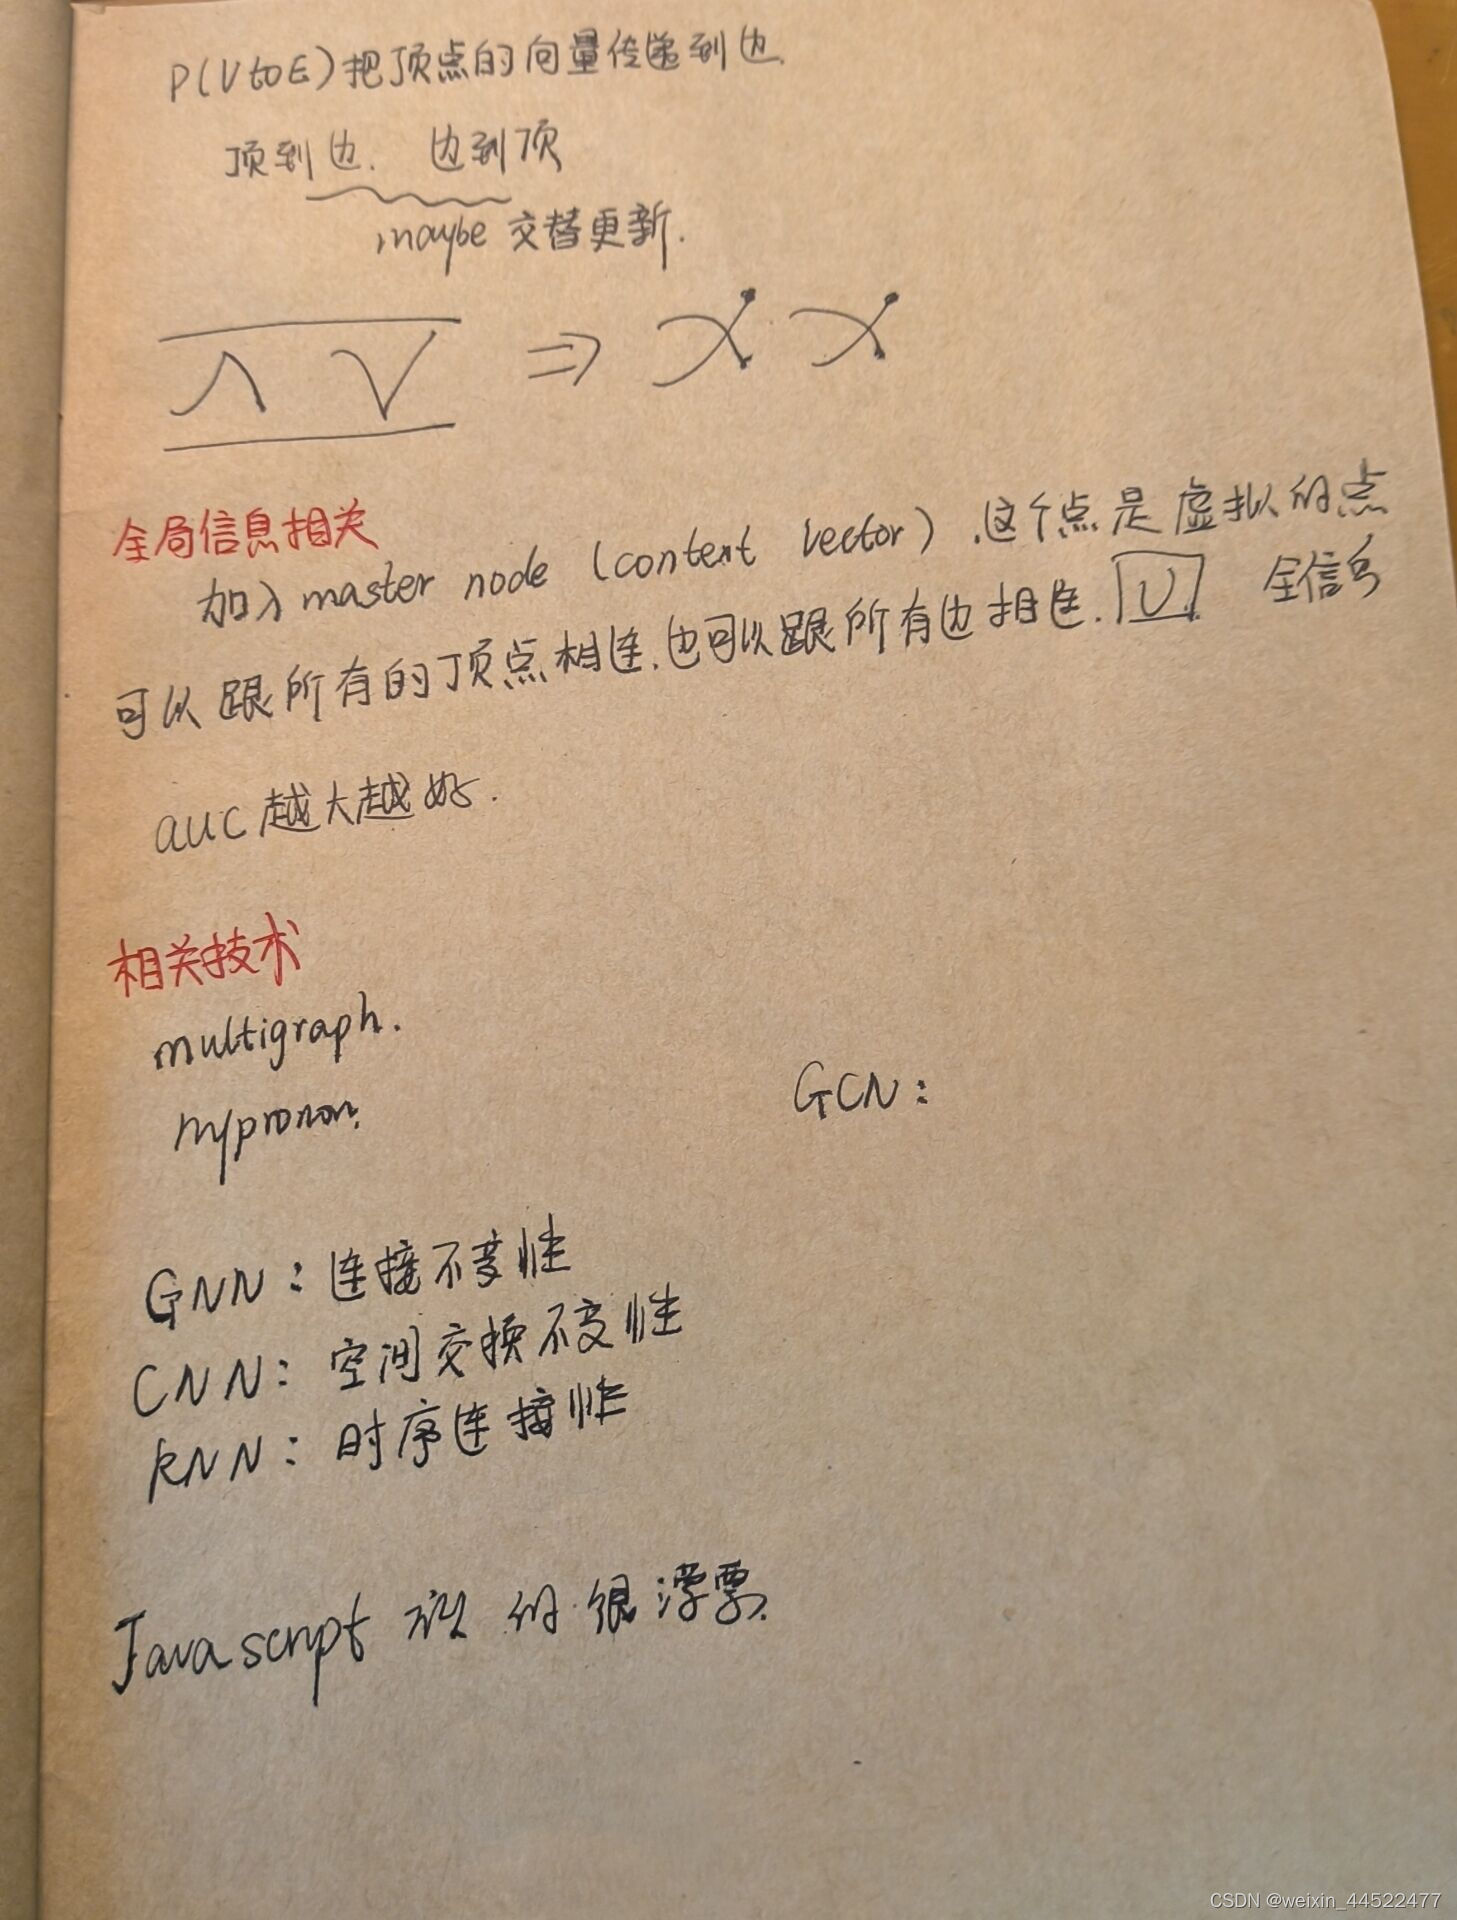 P(V to E)把顶点的向量传递到边.
顶到边. 边到顶
maybe 交替更新.
全局信息相关
加入 master node (context vector).这个点是虚拟的点
可以跟所有的顶点相连.也可以跟所有边相连. U 全信号
auc越大越好.
相关技术
multigraph.
GCN:
GNN:连接不变性
CNN:空间交换不变性
RNN:时序连接性
Javascript 的很漂票.